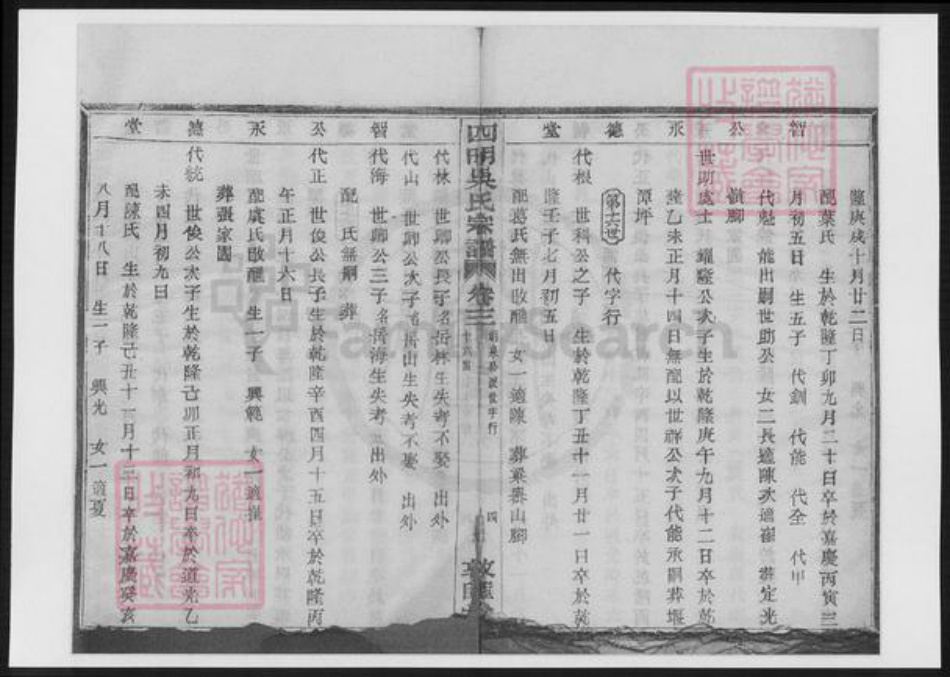 隆庚戌十月廿二日
智
配葉氏 生於乾隆丁卯九月二十日卒於嘉慶丙寅三
月初五日 生五子 代釗 代能 代全 代甲
代魁 能出嗣世助公 女二長適陳次適崔 葬定光
公
嶺腳
世助處士 耀隆公次子生於乾隆庚午九月十二日卒於乾
永
隆乙未正月十四日無配以世祥公次子代能承嗣葬堰
潭坪
德
第十二世 代字行
代根 世科公之子 生於乾隆丁丑十一月廿一日卒於乾
隆壬子七月初五日
堂
配葛氏無出改醮 女一適陳 葬梁嶴山腳
四明吳氏宗譜 卷三
十六當
四
代林 世卿公長子名岳林生失考不娶 出外
代山 世卿公次子名岳山生失考不娶 出外
智
代海 世卿公三子名岳海生失考 出外
配 氏無嗣 葬
公
代正 世俊公長子生於乾隆辛酉四月十五日卒於乾隆丙
午正月十六日
永
配虞氏改醮 生一子 興範 女一適
葬張家園
德
代統 世俊公次子生於乾隆己卯正月初九日卒於道光乙
未四月初九日
堂
配陳氏 生於乾隆己丑十二月十二日卒於嘉慶癸亥
八月十八日 生一子 興光 女一適夏
FamilySearch